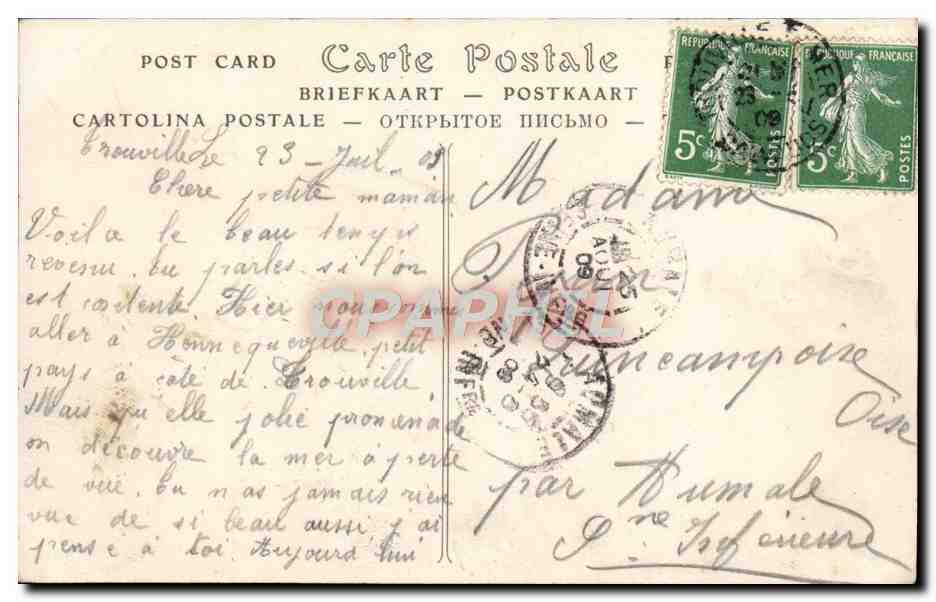 POST CARD Carte Postale
BRIEFKAART — POSTKAART
CARTOLINA POSTALE — ОТКРЫТОЕ ПИСЬМО —
REPUBLIQUE FRANÇAISE
5c
POSTES
REPUBLIQUE FRANÇAISE
5c
POSTES
Trouville Le 23 Juil 09
Chere petite maman
Voila le beau temps
revenu, tu parles si l'on
est contente Hier nous
aller à Hennequeville petit
pays à côté de Trouville
Mais qu elle jolie promenade
on découvre la mer a perte
de vue. tu n as jamais rien
vue de si beau aussi j ai
pensé à toi Aujourd hui
Madame
Quincampoix
Oise
par Aumale
Sne Inférieure
25
AOUT
09
AUMALE
CPAPHIL